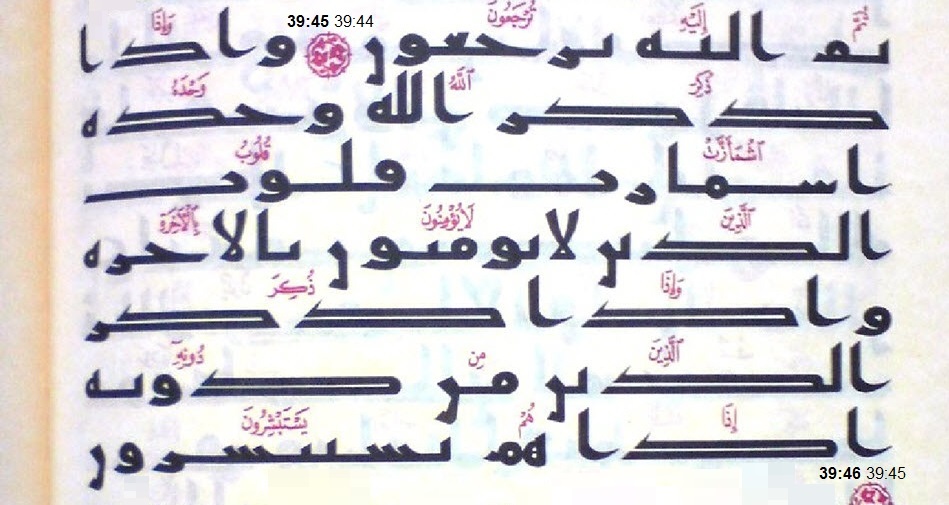 39:45 39:44
ثُمَّ إِلَيْهِ تُرْجَعُونَ وَإِذَا
ثم اليه ترجعون واذا
ذُكِرَ ٱللَّهُ وَحْدَهُ
ذكر الله وحده
ٱشْمَأَزَّتْ قُلُوبُ
اشمازت قلوب
ٱلَّذِينَ لَا يُؤْمِنُونَ بِٱلْآخِرَةِ
الذين لا يومنون بالاخره
وَإِذَا ذُكِرَ
واذا ذكر
ٱلَّذِينَ مِن دُونِهِۦٓ
الذين من دونه
إِذَا هُمْ يَسْتَبْشِرُونَ
اذا هم يستبشرون
39:46 39:45